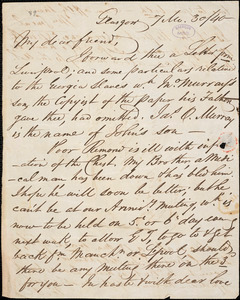 Glasgow 7 Mo. 30/40
My dear friend,
Forward thee a Letter fm
Liverpool; and some particulars relative
to the Georgia Slaves wh. Mc.Murray's
Son, the Copyist of the Paper his Father
gave thee, had omitted. Jas. R. Murray,
is the name of John's son —
Poor Remond is ill with inflam-
ation of the Chest. My Brother a Medi-
cal man has been down & has bled him.
I hope he will soon be better, but he
can't be at our Annivy. Meeting wh. is
now to be held on 5. or 6 day even.
next week, to allow G.T. to go to & get
back fm Manchr. or L.pool, should
there be any meeting there on the 3
for you — In haste & with dear love